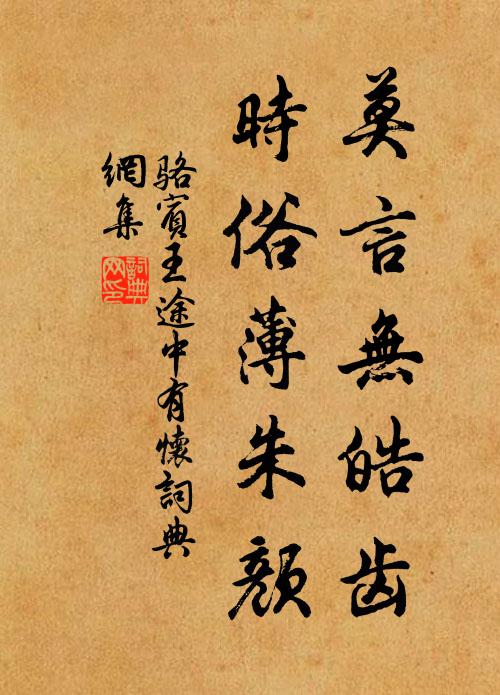 莫言無皓齿
時俗薄朱顏
骆賓王途中有懷詞典
網集
詞典网印